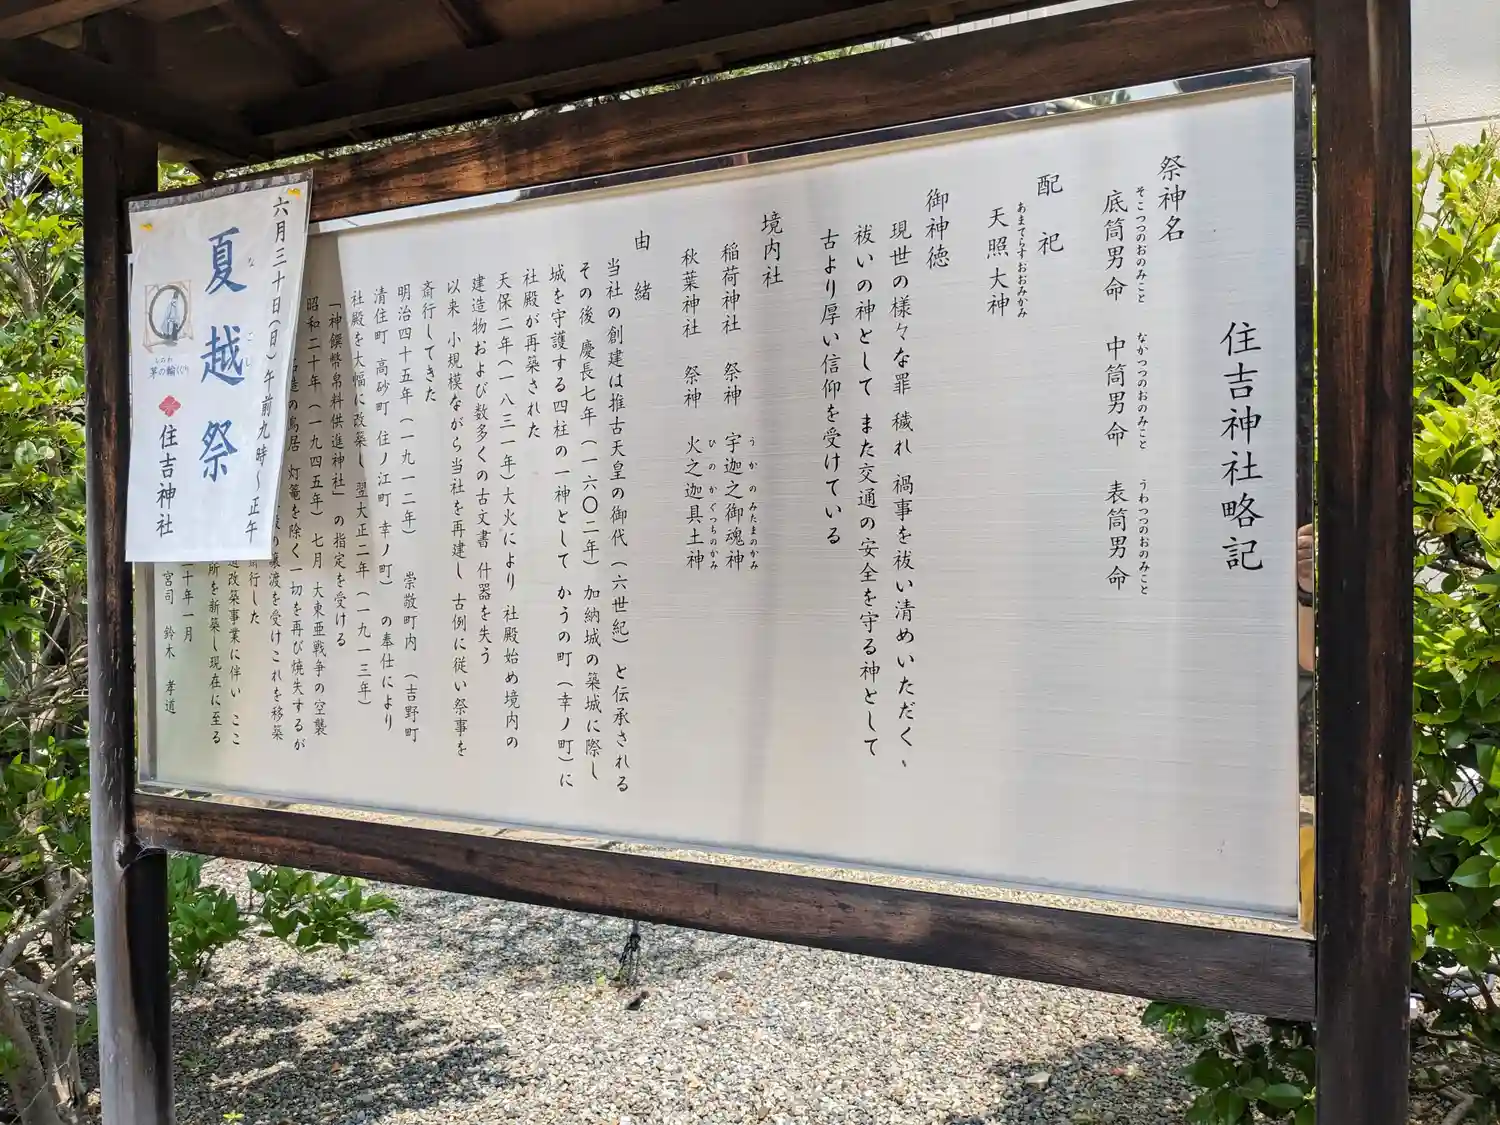 住吉神社略記
祭神名
そこつつのおのみこと なかつつのおのみこと うわつつのおのみこと
底筒男命 中筒男命 表筒男命
配祀
あまてらすおおみかみ
天照大神
御神徳
現世の様々な罪 穢れ 禍事を祓い清めいただく、
祓いの神として また交通の安全を守る神として
古より厚い信仰を受けている
境内社
うかのみたまのかみ
稲荷神社 祭神 宇迦之御魂神
ひのかぐつちのかみ
秋葉神社 祭神 火之迦具土神
由緒
当社の創建は推古天皇の御代(六世紀)と伝承される
その後 慶長七年(一六〇二年)加納城の築城に際し
城を守護する四柱の一神として かうの町(幸ノ町)に
社殿が再築された
天保二年(一八三一年)大火により 社殿始め境内の
建造物および数多くの古文書 什器を失う
以来 小規模ながら当社を再建し 古例に従い祭事を
斎行してきた
明治四十五年(一九一二年) 崇敬町内(吉野町
清住町 高砂町 住ノ江町 幸ノ町)の奉仕により
社殿を大幅に改築し 翌大正二年(一九一三年)
「神饌幣帛料供進神社」の指定を受ける
昭和二十年(一九四五年)七月 大東亜戦争の空襲
の鳥居 灯篭を除く一切を再び焼失するが
の譲渡を受けこれを移築
斎行した
道改築事業に伴い ここ
所を新築し現在に至る
二十年一月
宮司 鈴木 孝道
六月三十日(日)午前九時〜正午
なごし
夏越祭
ちのわ
茅の輪くぐり
住吉神社